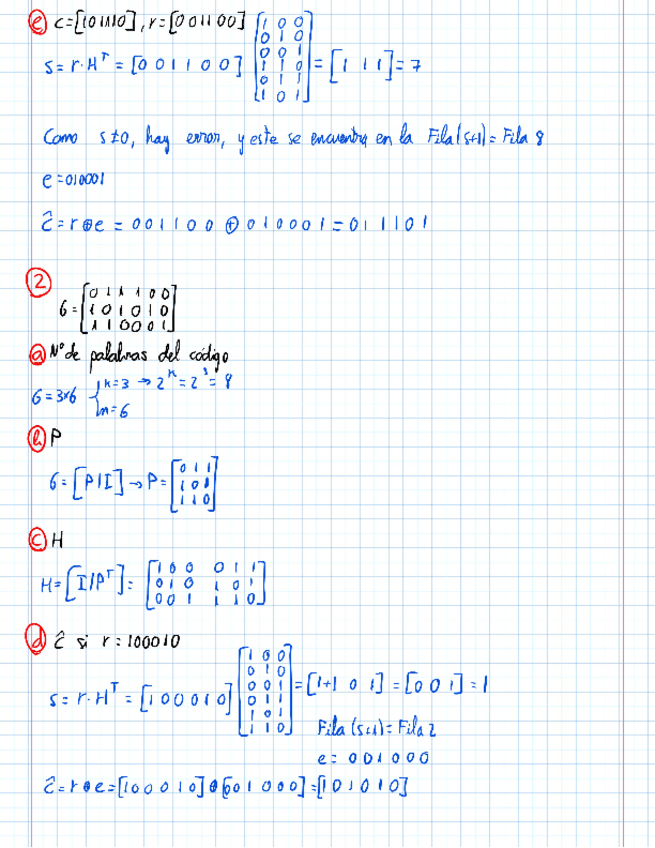 e) c=[101110], r=[001100]
s=r·Hᵀ=[0 0 1 1 0 0] [1 0 0; 0 1 0; 0 0 1; 1 1 0; 0 1 1; 1 0 1] = [1 1 1] = 7
Como s≠0, hay error, y este se encuentra en la Fila(s+1)=Fila 8
e=010001
ĉ=r⊕e=001100⊕010001=011101
2
G=[0 1 1 1 0 0; 1 0 1 0 1 0; 1 1 0 0 0 1]
a) Nº de palabras del código
G=3×6 { k=3 → 2ᵏ=2³=8
n=6
b) P
G=[P|I]→P=[0 1 1; 1 0 1; 1 1 0]
c) H
H=[I|Pᵀ]=[1 0 0 0 1 1; 0 1 0 1 0 1; 0 0 1 1 1 0]
d) ĉ si r=100010
s=r·Hᵀ=[1 0 0 0 1 0] [1 0 0; 0 1 0; 0 0 1; 0 1 1; 1 0 1; 1 1 0] = [1+1 0 1] = [0 0 1] = 1
Fila(s+1)=Fila 2
e=001000
ĉ=r⊕e=[100010]⊕[001000]=[101010]